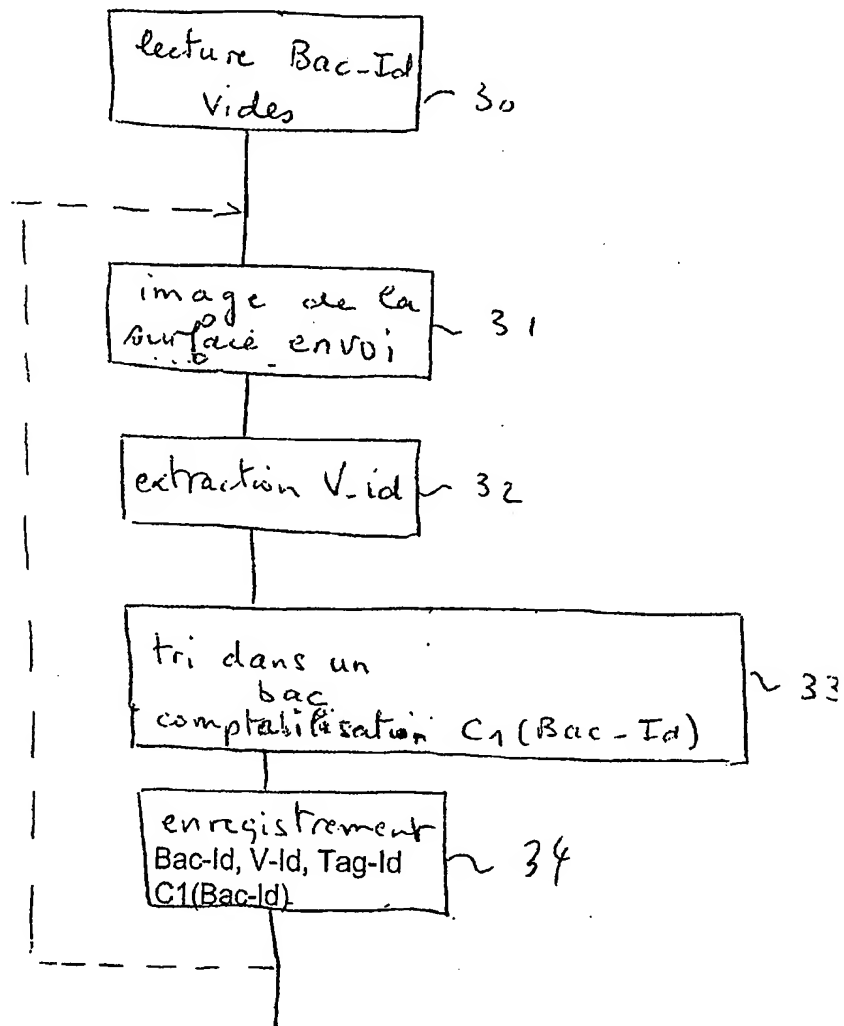 lecture Bac-Id
vides
30
image de la
surface envoi
31
extraction V-id
32
tri dans un
bac
comptabilisation C1(Bac-Id)
33
enregistrement
Bac-Id, V-Id, Tag-Id
C1(Bac-Id)
34